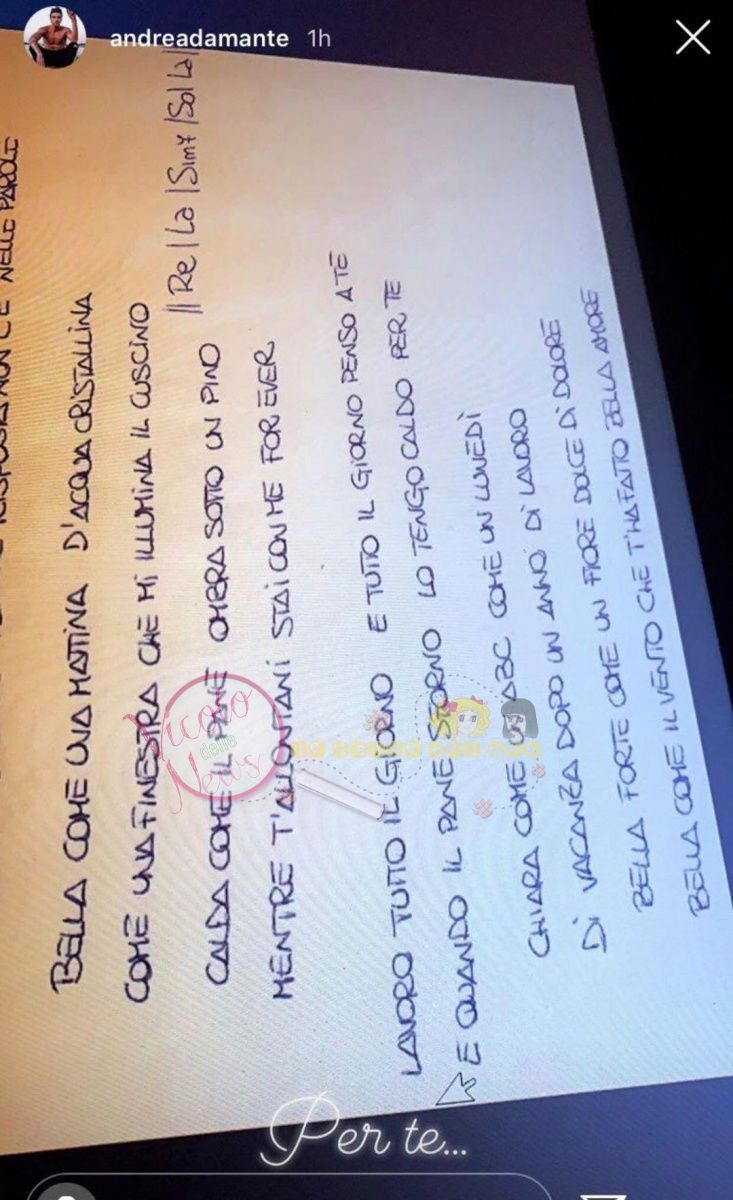 andreadamante 1h
NELLE PAROLE
BELLA COME UNA MATTINA D'ACQUA CRISTALLINA
COME UNA FINESTRA CHE MI ILLUMINA IL CUSCINO
|| Re | La | Sim7 | Sol La ||
CALDA COME IL PANE OMBRA SOTTO UN PINO
MENTRE T'ALLONTANI STAI CON ME FOREVER
LAVORO TUTTO IL GIORNO E TUTTO IL GIORNO PENSO A TE
E QUANDO IL PANE STORNO LO TENGO CALDO PER TE
CHIARA COME UN ABC COME UN LUNEDÌ
DÌ VACANZA DOPO UN ANNO DÌ LAVORO
BELLA FORTE COME UN FIORE DOLCE DI DOLORE
BELLA COME IL VENTO CHE T'HA FATTO BELLA AMORE
Vicolo
delle
News
Per te...